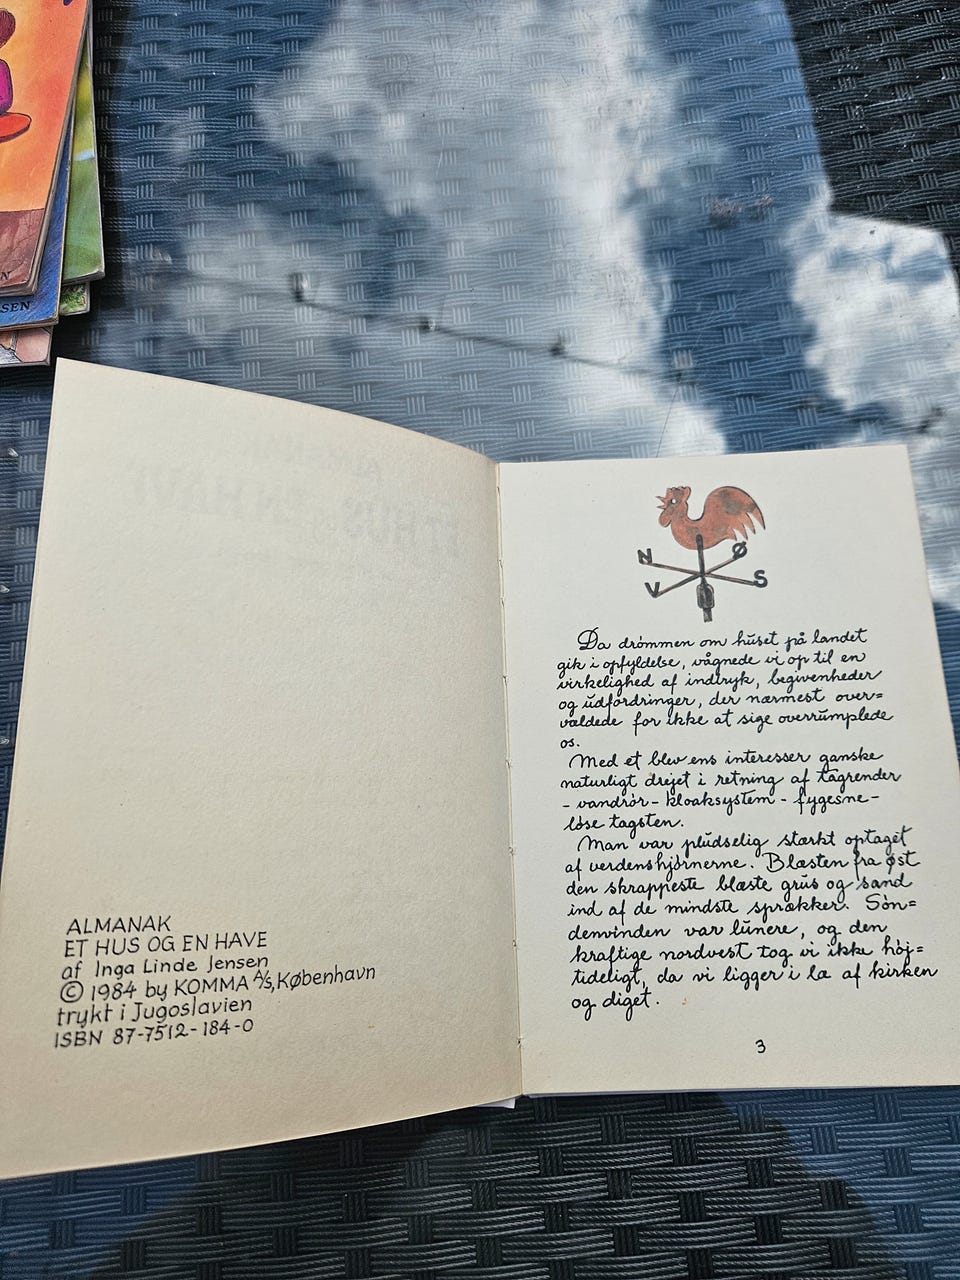 N
SEN
ALMANAK
ET HUS OG EN HAVE
af Inga Linde Jensen
© 1984 by KOMMA A/S, København
trykt i Jugoslavien
ISBN 87-7512-184-0
N Ø
V S
Da drömmen om huset på landet
gik i opfyldelse, vågnede vi op til en
virkelighed af indtryk, begivenheder
og udfordringer, der nærmest over=
vældede for ikke at sige overrumplede
os.
Med et blev ens interesser ganske
naturligt drejet i retning af tagrender
- vandrör - kloaksystem - fygesne-
löse tagsten.
Man var pludselig stærkt optaget
af verdenshjörnerne. Blæsten fra øst
den skrappeste blæste grus og sand
ind af de mindste sprækker. Sön=
denvinden var lunere, og den
kraftige nordvest tog vi ikke höj=
tideligt, da vi ligger i læ af kirken
og diget.
3